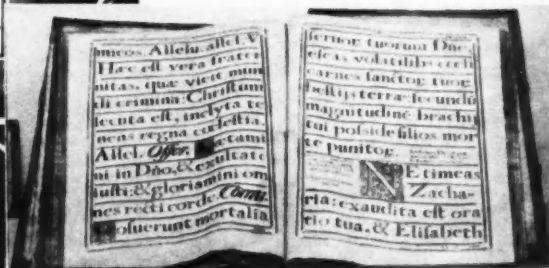 imicos. Allelu. allel. V
Hæc est vera frater
nitas, quæ vicit mun
di crimina: Christum
secuta est, inclyta te
nens regna cœlestia.
Allel. Offer. Lætami
ni in Dño, & exultate
iusti: & gloriamini om
nes recti corde. Comu.
Posuerunt mortalia
seruor. tuorum Dñe,
escas volatilib. cœli
carnes sanctor. tuor.
bestijs terræ: secundũ
magnitudinẽ brachij
tui posside filios mor
te punitor.
NE timeas
Zacha-
ria: exaudita est ora
tio tua, & Elisabeth